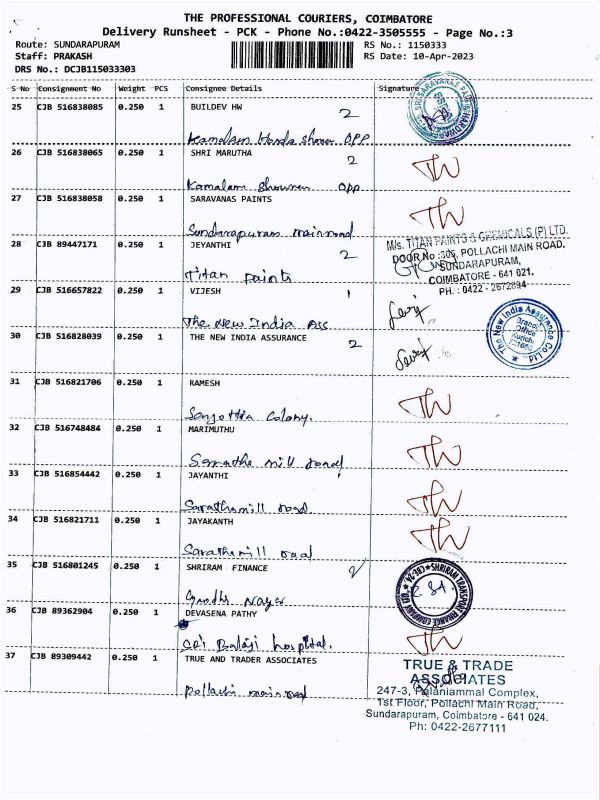 THE PROFESSIONAL COURIERS, COIMBATORE
Delivery Runsheet - PCK - Phone No.:0422-3505555 - Page No.:3
Route: SUNDARAPURAM RS No.: 1150333
Staff: PRAKASH RS Date: 10-Apr-2023
DRS No.: DCJB115033303
S No Consignment No Weight PCS Consignee Details Signature
25 CJB 516838085 0.250 1 BUILDEV HW
2
Kamalam Honda showroom OPP
26 CJB 516838065 0.250 1 SHRI MARUTHA
2
Kamalam OPP
27 CJB 516838058 0.250 1 SARAVANAS PAINTS
Sundarapuram mainroad
28 CJB 89447171 0.250 1 JEYANTHI
2
Titan paints
M/s. TITAN PAINTS & CHEMICALS (P) LTD.
DOOR No :308, POLLACHI MAIN ROAD,
SUNDARAPURAM,
COIMBATORE - 641 021.
PH. : 0422 - 2672894
29 CJB 516657822 0.250 1 VIJESH
The New India Ass
30 CJB 516828039 0.250 1 THE NEW INDIA ASSURANCE
2
The New India Assurance Co Ltd.
Branch
Office
31 CJB 516821706 0.250 1 RAMESH
Colony.
32 CJB 516748484 0.250 1 MARIMUTHU
mill road
33 CJB 516854442 0.250 1 JAYANTHI
Saratha mill road.
34 CJB 516821711 0.250 1 JAYAKANTH
Saratha mill road
35 CJB 516801245 0.250 1 SHRIRAM FINANCE
Gandhi Nagar
SHRIRAM TRANSPORT FINANCE COMPANY LTD
36 CJB 89362904 0.250 1 DEVASENA PATHY
Sai Balaji hospital.
37 CJB 89309442 0.250 1 TRUE AND TRADER ASSOCIATES
Pollachi mainroad
TRUE & TRADE
ASSOCIATES
247-3, Palaniammal Complex,
1st Floor, Pollachi Main Road,
Sundarapuram, Coimbatore - 641 024.
Ph: 0422-2677111